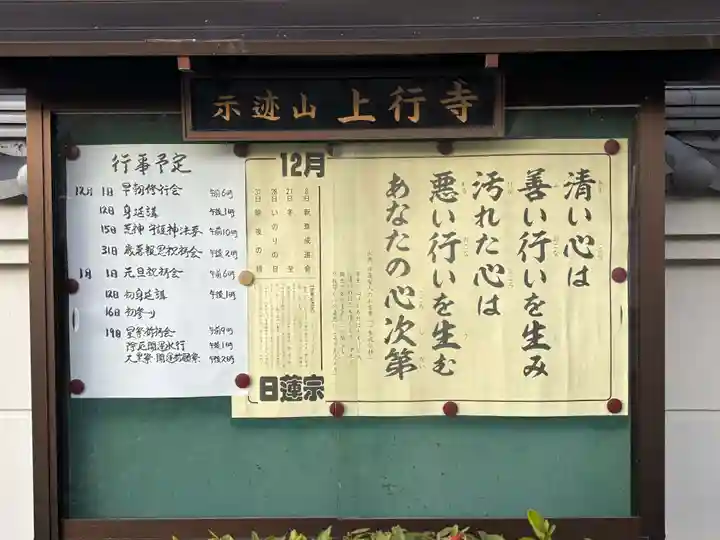 示迹山 上行寺
清い心は
善い行いを生み
汚れた心は
悪い行いを生む
あなたの心次第
12月
8日 釈尊成道会
21日 冬至
28日 いのりの日
31日 除夜の鐘
日蓮宗
行事予定
12月 1日 早朝修行会 午前6時
12日 身延講 午後1時
15日
31日 歳暮報恩祝祷会 午後2時
1月 1日 元旦祝祷会 午前6時
12日 初身延講 午後1時
16日 初参り
19日 星祭祈祷会 午前9時
午後1時
午後2時